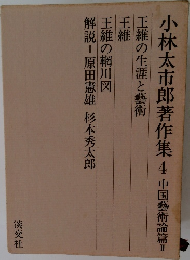 小林太市郎著作集4 中国藝術論篇Ⅱ
王維の生涯と藝術
王維
王維の輞川図
解説=原田憲雄 杉本秀太郎
淡交社